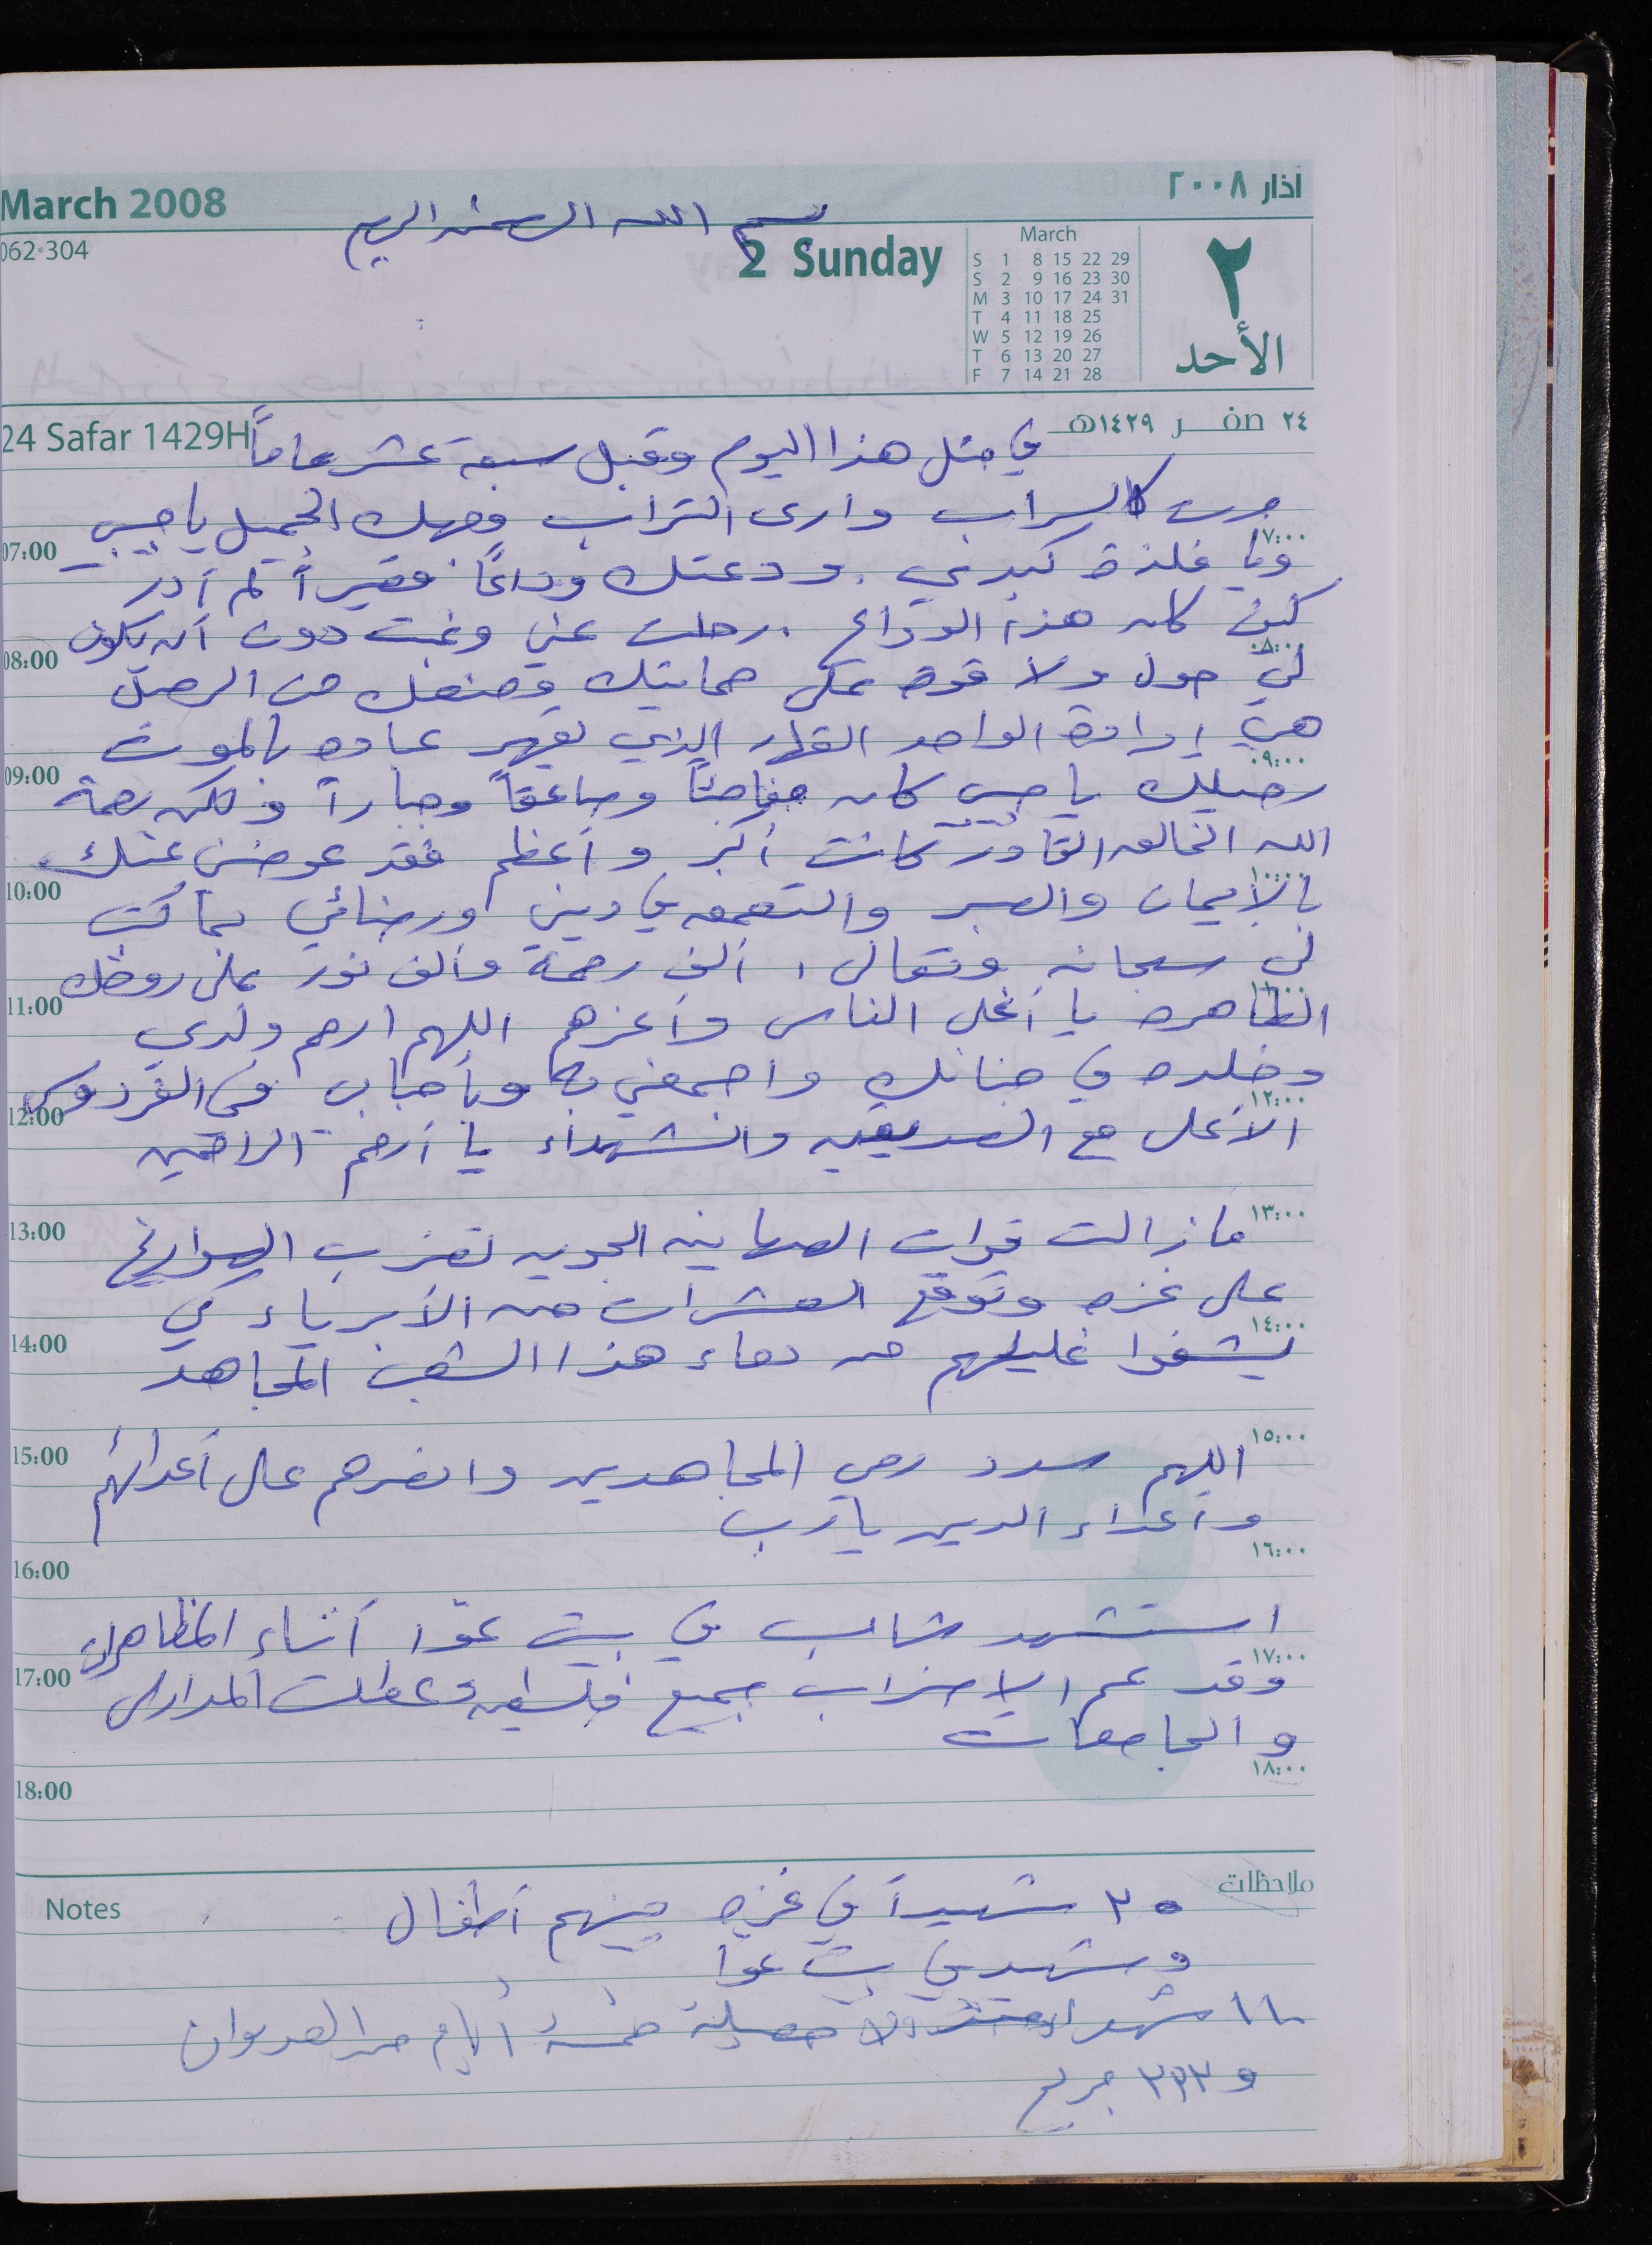 March 2008
آذار ٢٠٠٨
بسم الله الرحمن الرحيم
062-304
2 Sunday
March
S 1 8 15 22 29
S 2 9 16 23 30
M 3 10 17 24 31
T 4 11 18 25
W 5 12 19 26
T 6 13 20 27
F 7 14 21 28
٢
الأحد
24 Safar 1429H
٢٤ صفر ١٤٢٩هـ
في مثل هذا اليوم وقبل سبعة عشر عاماً
صرت كالسراب وارى التراب وجهك الجميل يا حبيبي
07:00 ٠٧:٠٠
ويا فلذة كبدي. ودعتك وداعاً قصيراً لم أدر
كيف كان هذا الوداع. رحلت عني وغبت دون أن يكون
08:00 ٠٨:٠٠
لي حول ولا قوة على حمايتك ومنعك من الرحيل
هي إرادة الواحد القهار الذي يقهر عباده بالموت
09:00 ٠٩:٠٠
رحيلك يا حبيبي كان مفاجئاً وصاعقاً وجباراً ولكن رحمة
الله الخالق القادر كانت أكبر وأعظم فقد عوضني عنك
10:00 ١٠:٠٠
بالأيمان والصبر والتعمق في ديني ورضائي بما كتب
لي سبحانه وتعالى، ألف رحمة وألف نور على روحك
11:00 ١١:٠٠
الطاهره يا أغلى الناس وأعزهم اللهم ارحم ولدي
وخلده في جنانك واجمعني به وبأحبابي في الفردوس
12:00 ١٢:٠٠
الأعلى مع الصديقين والشهداء يا أرحم الراحمين
13:00 ١٣:٠٠
ما زالت قوات الصهاينه الجويه تضرب الصواريخ
على غزه وتوقع العشرات من الأبرياء كي
14:00 ١٤:٠٠
يشفوا غليلهم من دماء هذا الشعب المجاهد
15:00 ١٥:٠٠
اللهم سدد رمي المجاهدين وانصرهم على أعدائهم
وأعداء الدين يا رب
16:00 ١٦:٠٠
استشهد شاب في بيت عوّا أثناء المظاهرات
17:00 ١٧:٠٠
وقد عم الإضراب جميع فلسطين وعطلت المدارس
والجامعات
18:00 ١٨:٠٠
Notes
ملاحظات
٣٥ شهيداً في غزه منهم أطفال
وشهيد في بيت عوا
١١٠ شهداء حصيلة خمسة أيام من العدوان
و ٣٩٢ جريح